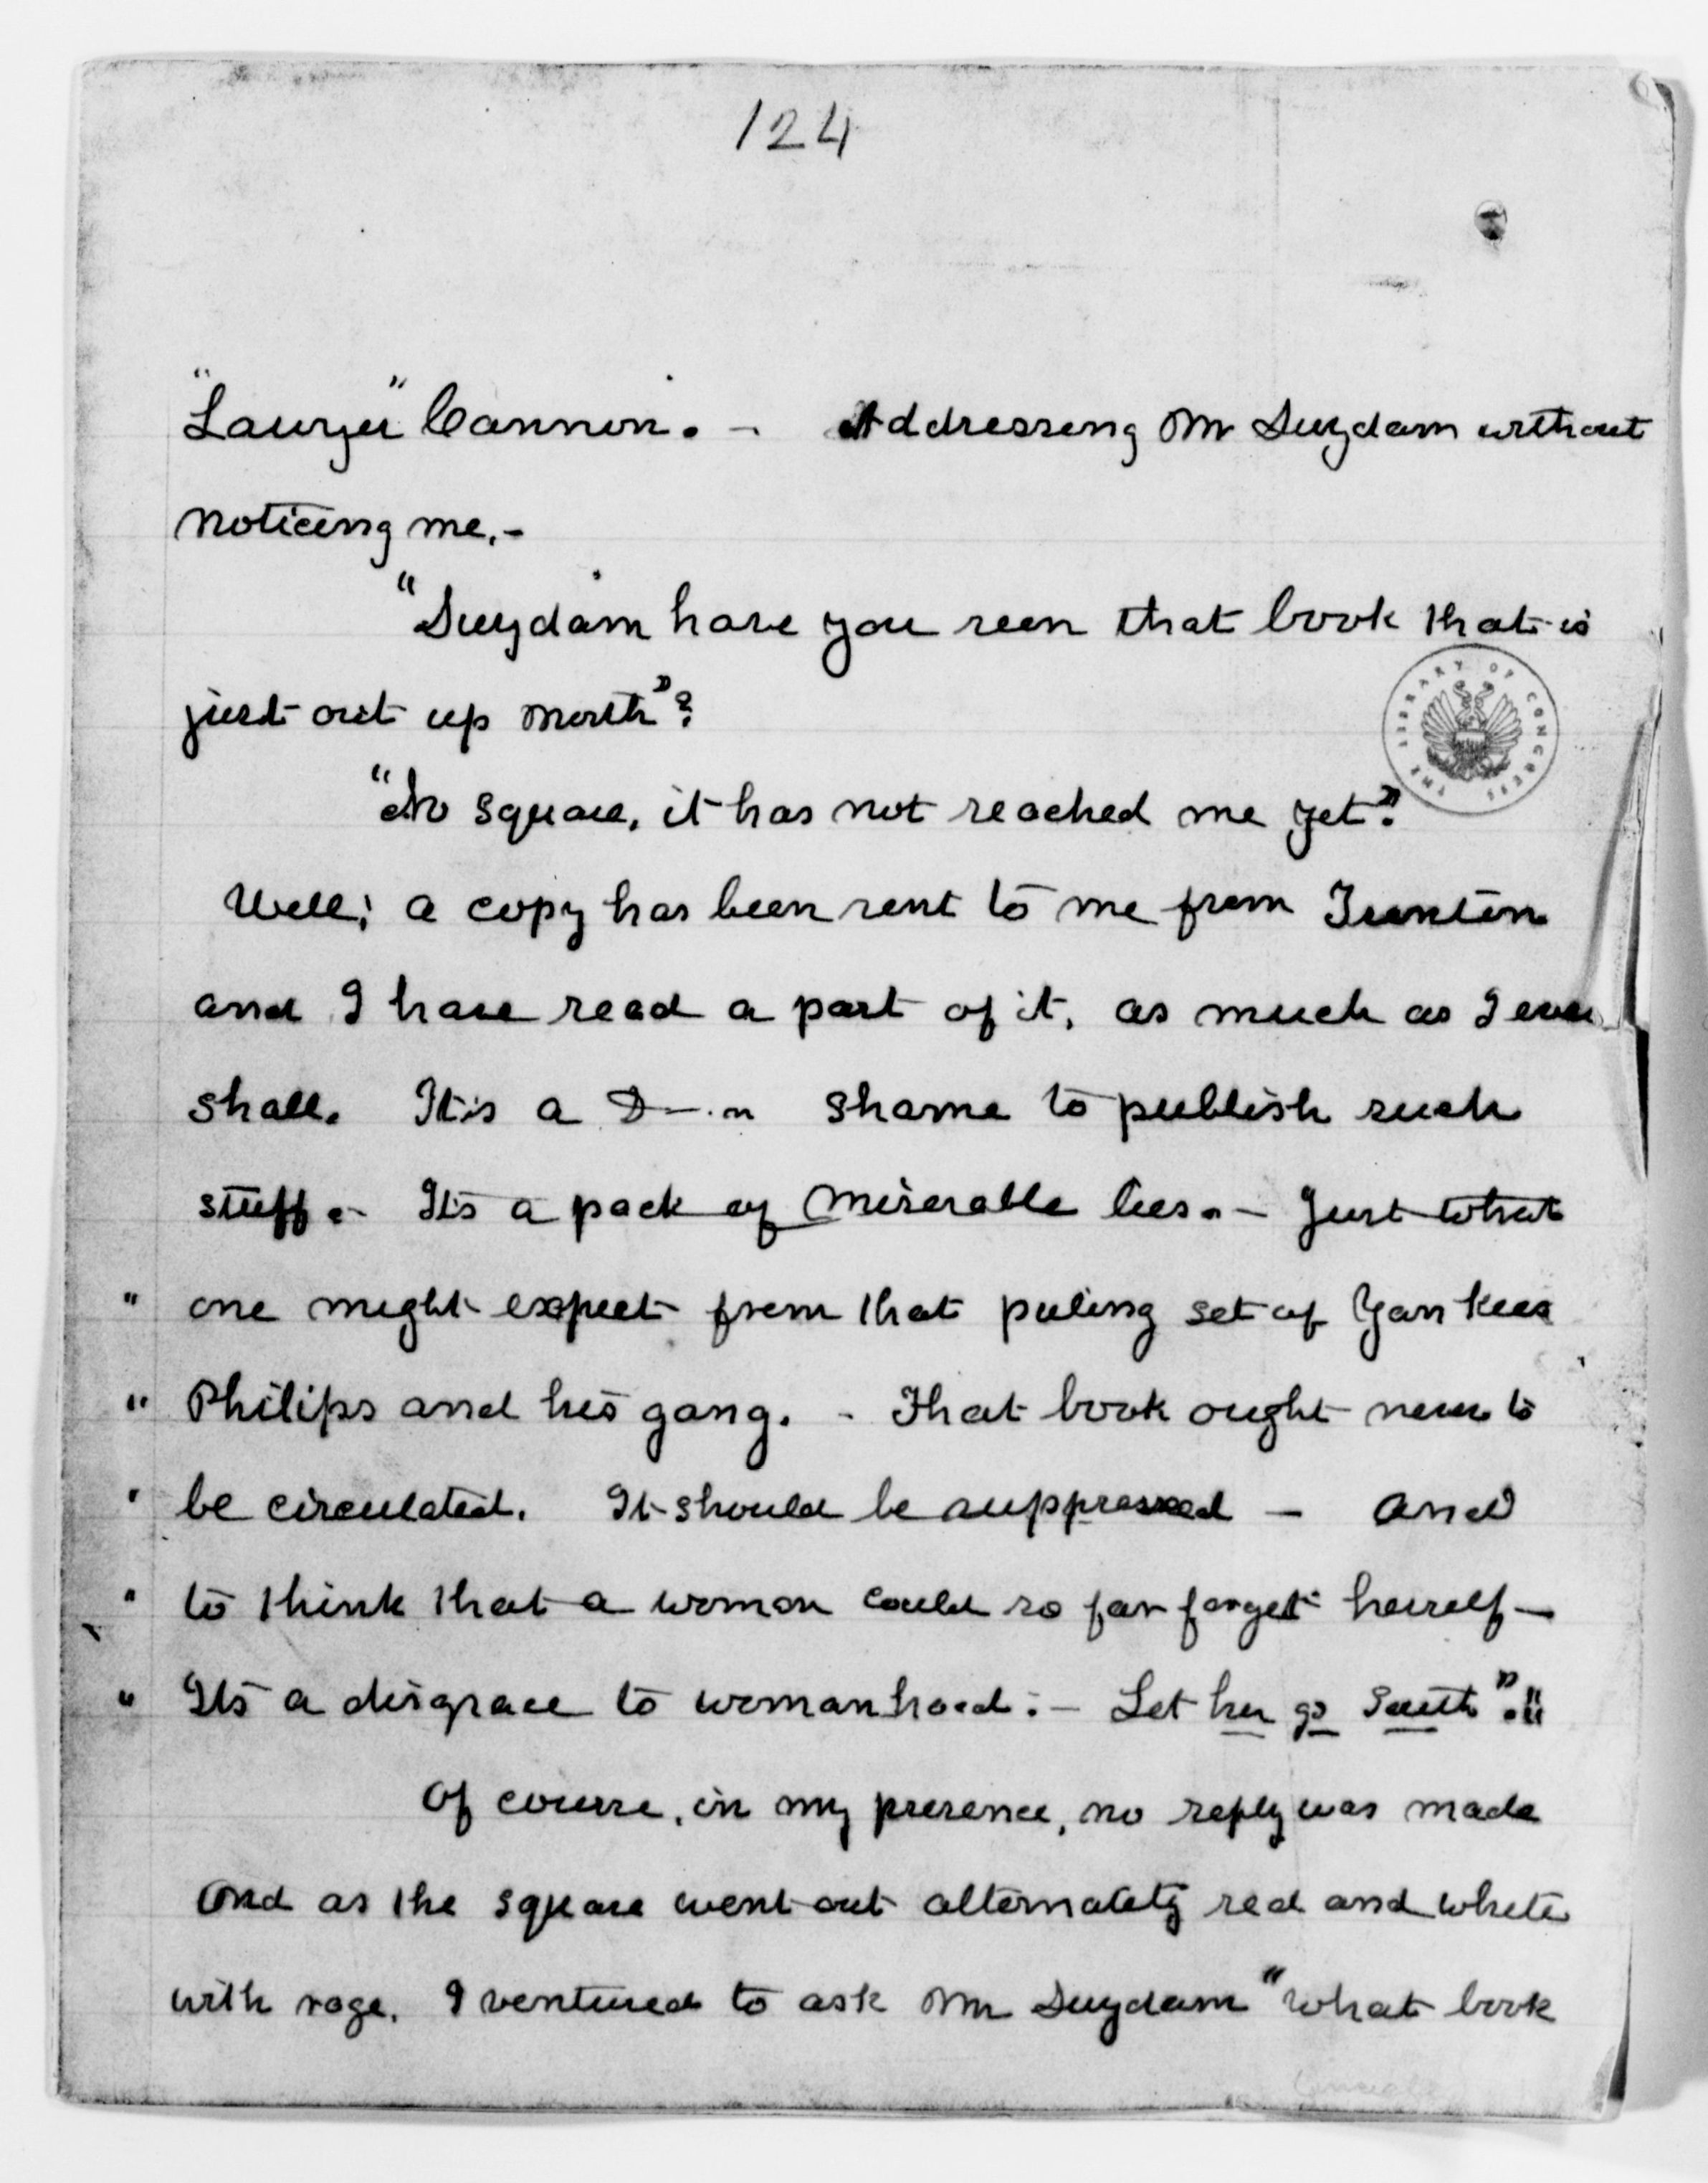 124
"Lawyer" Cannon. - Addressing Mr Suydam without
noticing me. -
"Suydam have you seen that book that is
just out up North"?
THE LIBRARY OF CONGRESS
"No Square, it has not reached me yet".
Well; a copy has been sent to me from Trenton
and I have read a part of it, as much as I ever
shall. It is a D--n shame to publish such
stuff. - Its a pack of miserable lies. - Just what
" one might expect from that puling set of Yankees
" Philips and his gang. - That book ought never to
" be circulated. It should be suppressed - and
" to think that a woman could so far forget herself -
" Its a disgrace to womanhood: - Let her go South".!!
Of course, in my presence, no reply was made
and as the Square went out alternately red and white
with rage. I ventured to ask Mr Suydam "what book